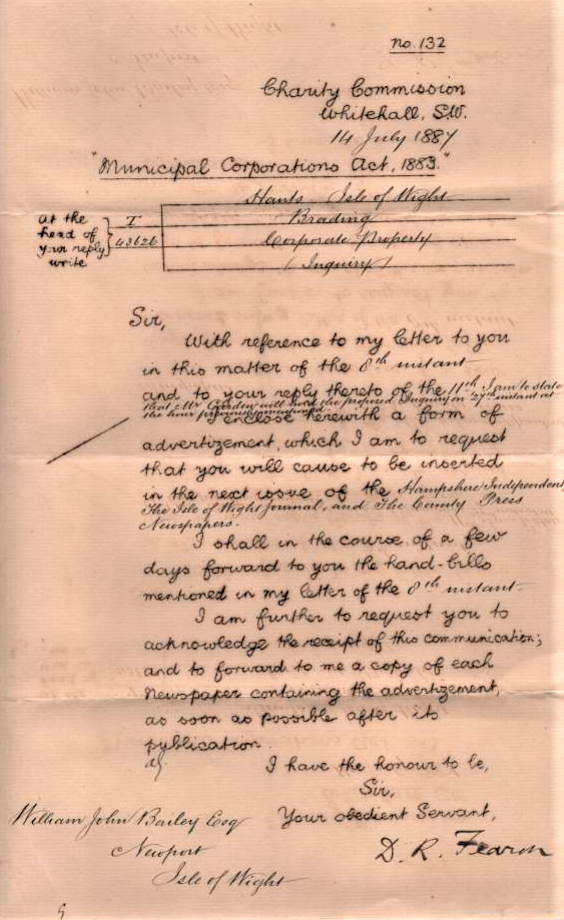 No. 132
Charity Commission
Whitehall, S.W.
14 July 1887
"Municipal Corporations Act, 1883."
at the
head of
your reply
write
T
43626
Hants Isle of Wight
Brading
Corporate Property
(Inquiry)
Sir,
With reference to my letter to you
in this matter of the 8th instant
and to your reply thereto of the 11th, I am to state
that Mr Gordon will hold the proposed Inquiry on 27th instant at
the hour
I enclose herewith a form of
advertizement, which I am to request
that you will cause to be inserted
in the next issue of the Hampshire Independent,
The Isle of Wight Journal, and The County Press
Newspapers.
I shall in the course of a few
days forward to you the hand-bills
mentioned in my letter of the 8th instant.
I am further to request you to
acknowledge the receipt of this communication;
and to forward to me a copy of each
Newspaper containing the advertizement,
as soon as possible after its
publication.
I have the honour to be,
Sir,
Your obedient Servant,
D. R. Fearon
William John Bailey Esq
Newport
Isle of Wight